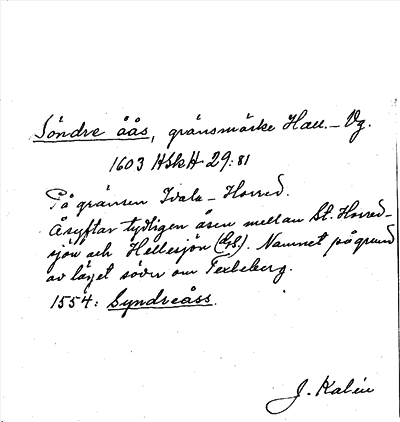 Söndre åås, gränsmärke Hall. – Vg.
1603 HSkH 29:81
På gränsen Idala – Horred.
Åsyftar tydligen åsen mellan St. Horred-
sjön och Hellesjön (GS). Namnet på grund
av läget söder om Texleberg.
1554: Syndreåss.
J. Kalén